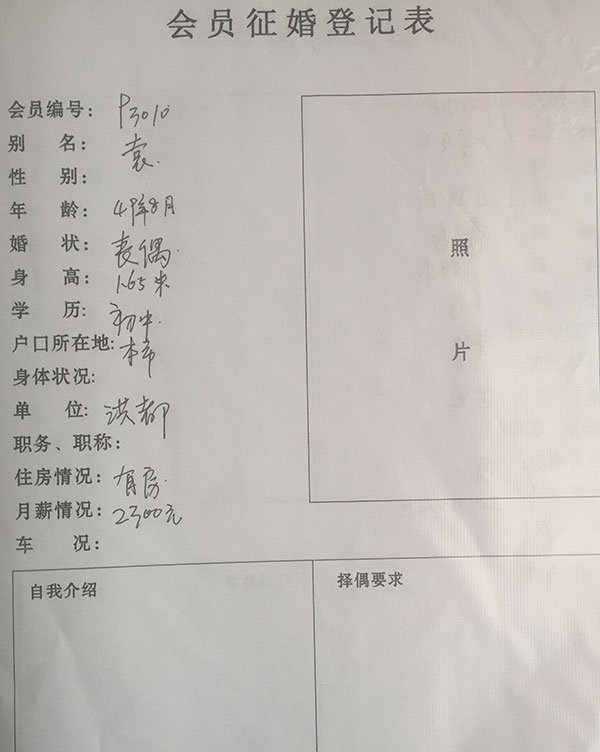 会员征婚登记表
会员编号: P3010
别 名: 袁.
性 别:
年 龄: 49年8月
婚 状: 丧偶.
身 高: 1.65米
学 历: 初中.
户口所在地: 本市
身体状况:
单 位: 洪都
职务、职称:
住房情况: 有房.
月薪情况: 2300元
车 况:
照
片
自我介绍
择偶要求